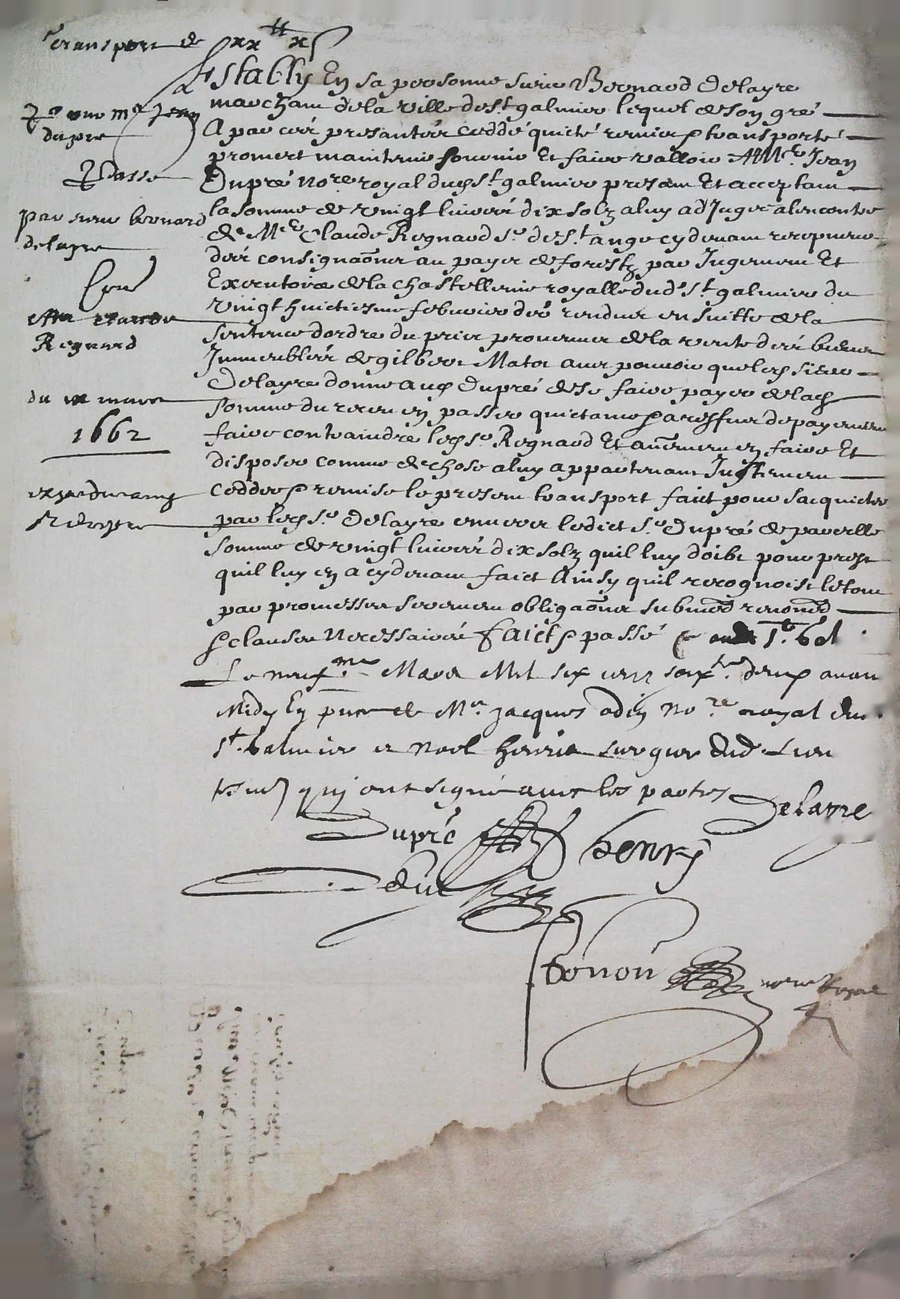 Transport de xx tt x s
Pour me Jean
dupré
Passé
par sieur bernard
delayre
Contre
Regnard
du ix mars
1662
Estably En sa personne sieur Bernard Delayre
marchant de la ville de St galmier lequel de son gré
A par ces presantes ceddé quicté remis & transporte
promect maintenir fournir Et faire valloir A Me Jean
Dupré Nore royal dud St galmier presant Et acceptant
la somme de vingt livres dix solz a luy adJugee alencontre
de Me Claude Regnard Sr de St ange cydevant receptveur
des consignaons au payes de forestz par Jugement Et
Executoire de la chastellenie royalle dud St galmier du
vingt huictiesme febvrier der rendue en suitte de la
sentence dordre du prix provenue de la vente des biens
Immeubles de gilbert Mator avec pouvoir que led sieur
Delayre donne aud Dupré de se faire payer de lad
somme du receu en passer quictance & a reffus de payement
faire contraindre led Sr Regnard Et autrement en faire Et
disposer comme de chose a luy appartenant Justement
ceddee & remise le present transport faict pour sacquicter
par led Sr Delayre envers ledict Sr Dupré de pareille
somme de vingt livres dix solz quil luy doibt pour prest
quil luy en a cydevant faict Ainsy quil recognoist le tout
par promesses serment obligaons submons renons
& clauses Necessaires faict & passé St gal
Le neufme Mars Mil six cens soixte deux avant
Midy En pnce de Me Jacques odin nore royal dud
St Galmier et noel henris dud Lieu
qui ont signé avec les parties Delayre
Dupré henry
odin
tonon nore Royal